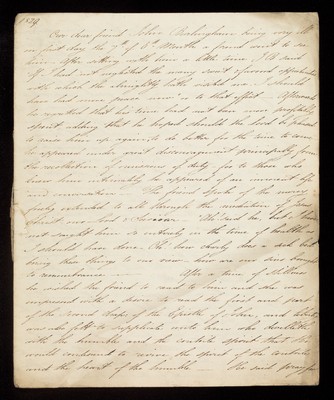 1829
Our dear friend John Buckingham being very ill
on first day the 7th of 6th Month a friend went to see
him. After sitting with him a little time J B said
If I had not neglected the many sweet opportunities
with which the almighty hath visited me I should
have had more peace now or to that effect. Afterwards
he regretted that his time had not been more profitably
spent adding that he hoped should the Lord be pleased
to raise him up again, to do better for the time to come
He appeared under great discouragement principally from
the recollection of omissions of duty, for to those who
knew him intimately he appeared of an innocent life
and conversation. The friend spoke of the mercy
freely extended to all through the mediation of Jesus
Christ our Lord & Saviour. Ah! said he, but I have
not sought him so entirely in the time of health as
I should have done. Oh! how closely does a sick bed
bring these things to one view how are our sins brought
to remembrance After a time of stillness
he wished the friend to read to him and she was
impressed with a desire to read the first and part
of the second chapr of the Epistle of John, and
was also to supplicate unto him who dwelleth
with the humble and the contrite spirit that He
would condescend to revive the spirit of the contrite
and the heart of the humble He said